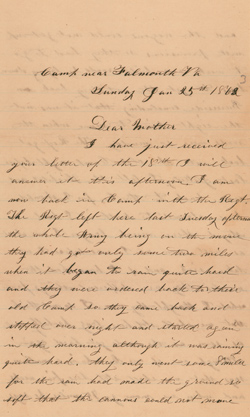 Camp near Falmouth Va
Sunday Jan 25th 1863
Dear Mother
I have just received
your letter of the 18th I will
answer it this afternoon. I am
now back in Camp with the Regt.
The Regt left here last Tuesday afternoon
the whole Army being on the move
they had got only some two miles
when it began to rain quite hard
and they were ordered back to their
old Camp so they came back and
stopped over night and started again
in the morning although it was raining
quite hard. they only went some 8 miles
for the rain had made the ground so
soft that the cannons could not move